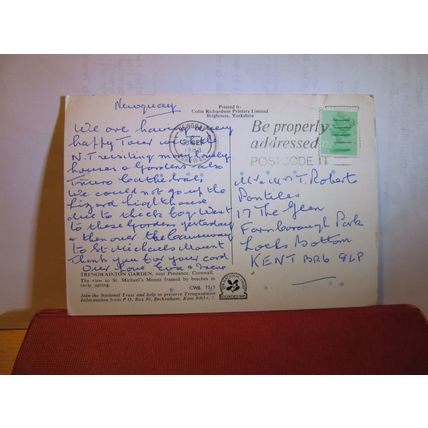 Newquay
We are having a very
happy Tour with the
N.T visiting many lovely
houses & Gardens also
Truro Cathedral.
We could not go up the
Lizard lighthouse
due to thick fog. Went
to these Gardens yesterday
& then over the causeway
to St Michaels Mount
Thank you for your card
Our Love Eva & Irene
TRENGWAINTON GARDEN, near Penzance, Cornwall.
The view to St. Michael's Mount framed by beeches in
early spring.
CWB.
Join the National Trust and help to preserve Trengwainton
Information from P.O. Box 30, Beckenham, Kent BR3
Printed by
Colin Richardson Printers Limited
Brighouse, Yorkshire
NEWQUAY
Be properly
addressed
POSTCODE IT
Mr & Mrs T. Roberts
Pantiles
17 The Glen
Farnborough Park
Locks Bottom
KENT BR6 8LP